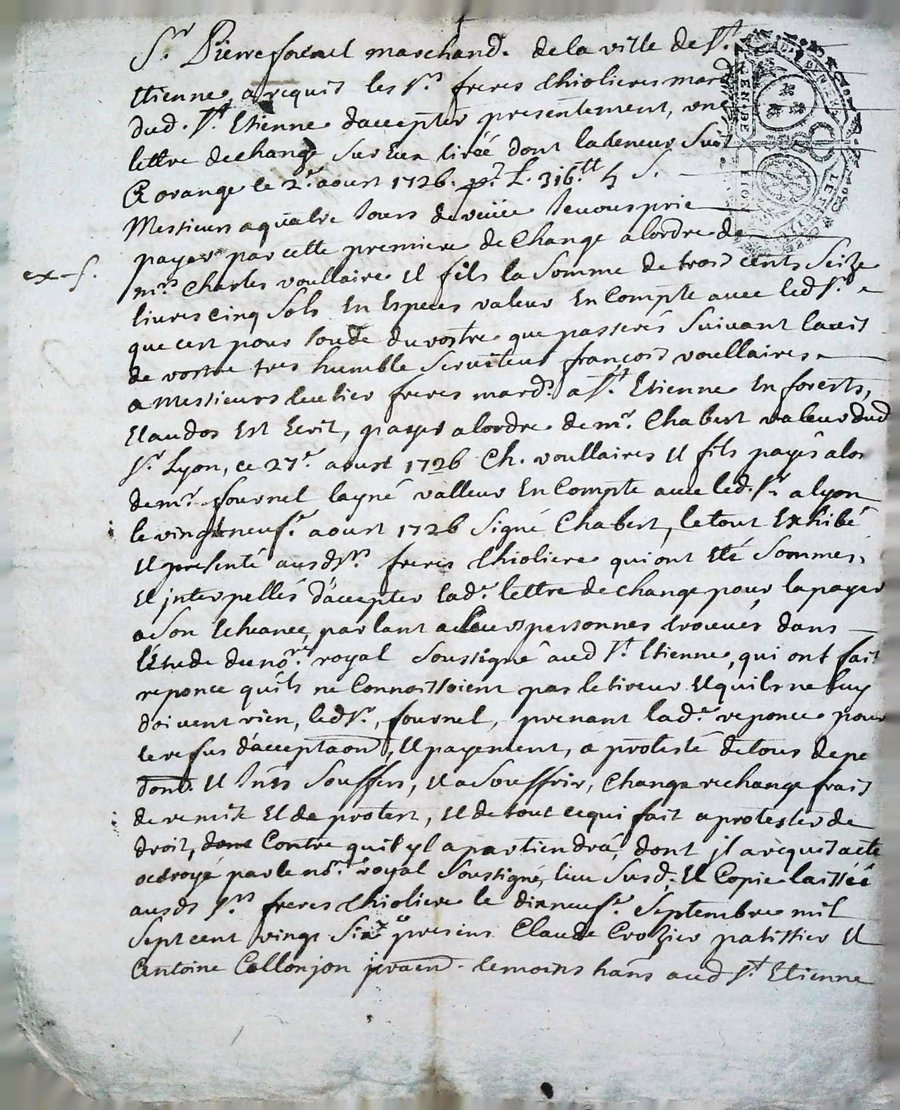 Sr. Pierre fornel marchand. de la ville de St.
Etienne, a requit les Srs. freres thiolieres mard
dud. St. Etienne daccepter presentement, une
lettre de change sur Eux tirée dont la teneur Suit
A orange le 2e. aoust 1726. pr. L. 316tt 5 S.
Messieurs a quatre Jours de veüe Je vous prie
payer par cette premiere de Change a lordre de
ex-f.
mrs. Charles voullaire Et fils la Somme de trois cents Seize
livres cinq Sols En Especes valeur En Compte avec led Sr.
que cest pour Soude du vostre que passerés Suivant lavis
de vostre tres humble Serviteur françois voullaires
a Messieurs freres mard. a St. Etienne En forests,
Et au dos Est Ecrit, payés a lordre de mr. Chabert valeur dud
Sr. Lyon, ce 27e. aoust 1726 Ch. voullaires Et fils payés a lor
de mr. fournel layné valleur En Compte avec led. Sr. a lyon
le vingt neufe. aoust 1726 Signé Chabert, le tout Exhibé
Et presenté ausd Srs. freres thioliere qui ont Eté Sommés,
Et interpellés d'accepter lad. lettre de change pour la payer
a Son Echeance, parlant a leurs personnes trouvés dans
l'Etude du nore. royal Soussigné aud St. Etienne, qui ont fait
reponce quils ne Connoissoient pas le tireur Et quils ne luy
doivent rien, led Sr. fournel, prenant lade. reponce pour
le refus d'acceptaon, Et payement, a protesté de tous depe
Et Souffers, Et a Souffrir, Change rechange frais
de remise Et de protest, Et de tout ce qui fait a protester de
droit, Contre qui il apartiendra, dont il a requis acte
octroyé par le nore. royal Soussigné, lieu Susd. Et Copie laissée
ausds Srs. freres thioliere le dixneufe. Septembre mil
Sept cent vingt Six presens Claude Crozier patissier Et
Antoine Collonjon temoins hans aud St. Etienne
GEN. DE
LYON